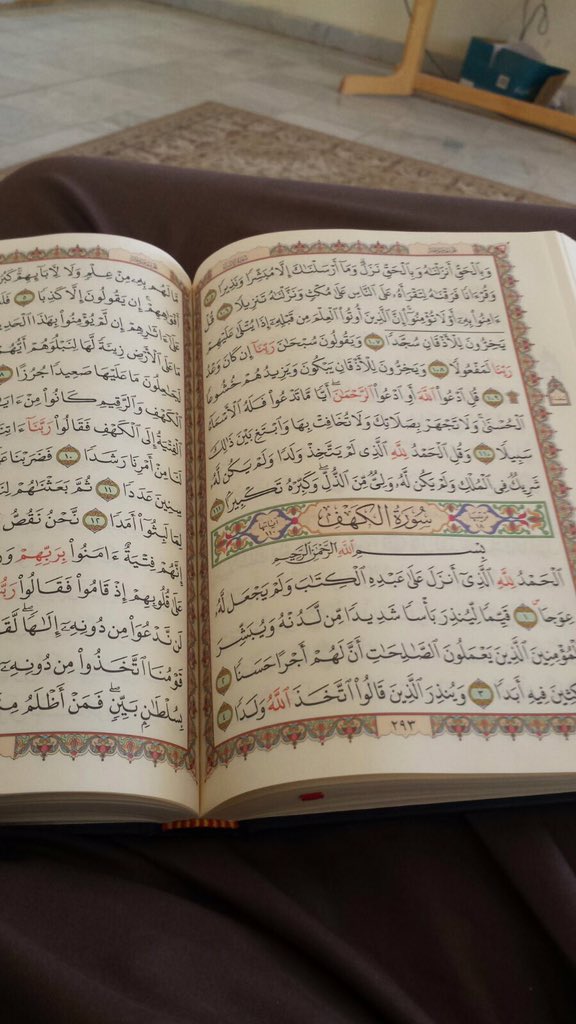 وَبِٱلْحَقِّ أَنزَلْنَٰهُ وَبِٱلْحَقِّ نَزَلَ وَمَآ أَرْسَلْنَٰكَ إِلَّا مُبَشِّرًا وَنَذِيرًا ١٠٥
وَقُرْءَانًا فَرَقْنَٰهُ لِتَقْرَأَهُۥ عَلَى ٱلنَّاسِ عَلَىٰ مُكْثٍ وَنَزَّلْنَٰهُ تَنزِيلًا ١٠٦ قُلْ
ءَامِنُوا۟ بِهِۦٓ أَوْ لَا تُؤْمِنُوٓا۟ إِنَّ ٱلَّذِينَ أُوتُوا۟ ٱلْعِلْمَ مِن قَبْلِهِۦٓ إِذَا يُتْلَىٰ عَلَيْهِمْ
يَخِرُّونَ لِلْأَذْقَانِ سُجَّدًا ١٠٧ وَيَقُولُونَ سُبْحَٰنَ رَبِّنَآ إِن كَانَ وَعْدُ
رَبِّنَا لَمَفْعُولًا ١٠٨ وَيَخِرُّونَ لِلْأَذْقَانِ يَبْكُونَ وَيَزِيدُهُمْ خُشُوعًا
١٠٩ قُلِ ٱدْعُوا۟ ٱللَّهَ أَوِ ٱدْعُوا۟ ٱلرَّحْمَٰنَ أَيًّا مَّا تَدْعُوا۟ فَلَهُ ٱلْأَسْمَآءُ
ٱلْحُسْنَىٰ وَلَا تَجْهَرْ بِصَلَاتِكَ وَلَا تُخَافِتْ بِهَا وَٱبْتَغِ بَيْنَ ذَٰلِكَ
سَبِيلًا ١١٠ وَقُلِ ٱلْحَمْدُ لِلَّهِ ٱلَّذِى لَمْ يَتَّخِذْ وَلَدًا وَلَمْ يَكُن لَّهُۥ
شَرِيكٌ فِى ٱلْمُلْكِ وَلَمْ يَكُن لَّهُۥ وَلِىٌّ مِّنَ ٱلذُّلِّ وَكَبِّرْهُ تَكْبِيرًۢا ١١١
سُورَةُ ٱلْكَهْفِ
بِسْمِ ٱللَّهِ ٱلرَّحْمَٰنِ ٱلرَّحِيمِ
ٱلْحَمْدُ لِلَّهِ ٱلَّذِىٓ أَنزَلَ عَلَىٰ عَبْدِهِ ٱلْكِتَٰبَ وَلَمْ يَجْعَل لَّهُۥ
عِوَجَا ١ قَيِّمًا لِّيُنذِرَ بَأْسًا شَدِيدًا مِّن لَّدُنْهُ وَيُبَشِّرَ
ٱلْمُؤْمِنِينَ ٱلَّذِينَ يَعْمَلُونَ ٱلصَّٰلِحَٰتِ أَنَّ لَهُمْ أَجْرًا حَسَنًا ٢
مَّٰكِثِينَ فِيهِ أَبَدًا ٣ وَيُنذِرَ ٱلَّذِينَ قَالُوا۟ ٱتَّخَذَ ٱللَّهُ وَلَدًا ٤
٢٩٣
مَّا لَهُم بِهِۦ مِنْ عِلْمٍ وَلَا لِءَابَآئِهِمْ
أَفْوَٰهِهِمْ إِن يَقُولُونَ إِلَّا كَذِبًا ٥
عَلَىٰٓ ءَاثَٰرِهِمْ إِن لَّمْ يُؤْمِنُوا۟ بِهَٰذَا
مَا عَلَى ٱلْأَرْضِ زِينَةً لَّهَا لِنَبْلُوَهُمْ أَيُّهُمْ
لَجَٰعِلُونَ مَا عَلَيْهَا صَعِيدًا جُرُزًا ٨
ٱلْكَهْفِ وَٱلرَّقِيمِ كَانُوا۟ مِنْ
ٱلْفِتْيَةُ إِلَى ٱلْكَهْفِ فَقَالُوا۟ رَبَّنَآ
لَنَا مِنْ أَمْرِنَا رَشَدًا ١٠ فَضَرَبْنَا
سِنِينَ عَدَدًا ١١ ثُمَّ بَعَثْنَٰهُمْ
لِمَا لَبِثُوٓا۟ أَمَدًا ١٢ نَّحْنُ نَقُصُّ
إِنَّهُمْ فِتْيَةٌ ءَامَنُوا۟ بِرَبِّهِمْ
عَلَىٰ قُلُوبِهِمْ إِذْ قَامُوا۟ فَقَالُوا۟
لَن نَّدْعُوَا۟ مِن دُونِهِۦٓ إِلَٰهًا
قَوْمُنَا ٱتَّخَذُوا۟ مِن دُونِهِۦٓ
بِسُلْطَٰنٍۭ بَيِّنٍ فَمَنْ أَظْلَمُ